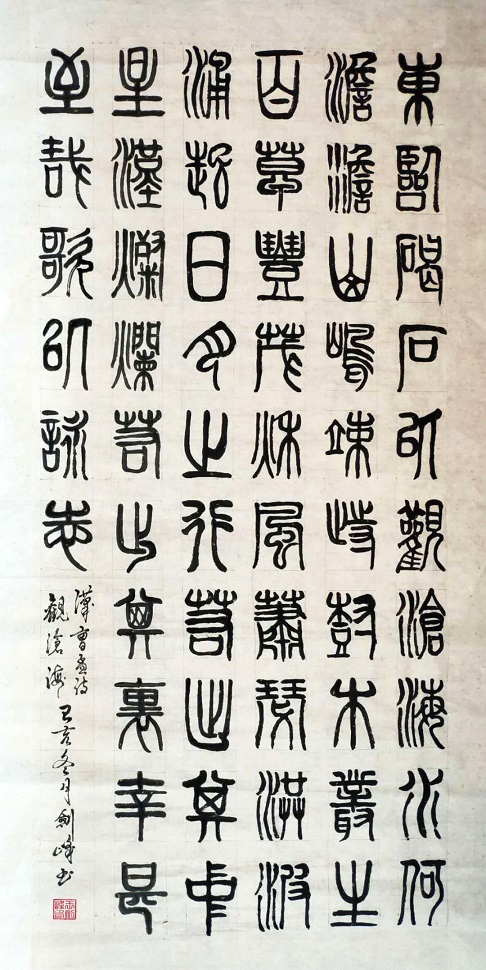 東臨碣石以觀滄海水何
澹澹山島竦峙樹木叢生
百草豐茂秋風蕭瑟洪波
涌起日月之行若出其中
星漢燦爛若出其裏幸甚
至哉歌以詠志
漢曹孟詩
觀滄海 己亥冬月劍峰書